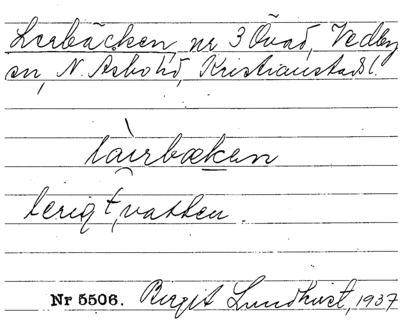 Lerbäcken, nr 3 Övad, Vedby
sn, N. Åsbo hd, Kristianstads l.
làirbæken
lerigt, vatten.
Nr 5506. Birgit Lundkvist, 1937